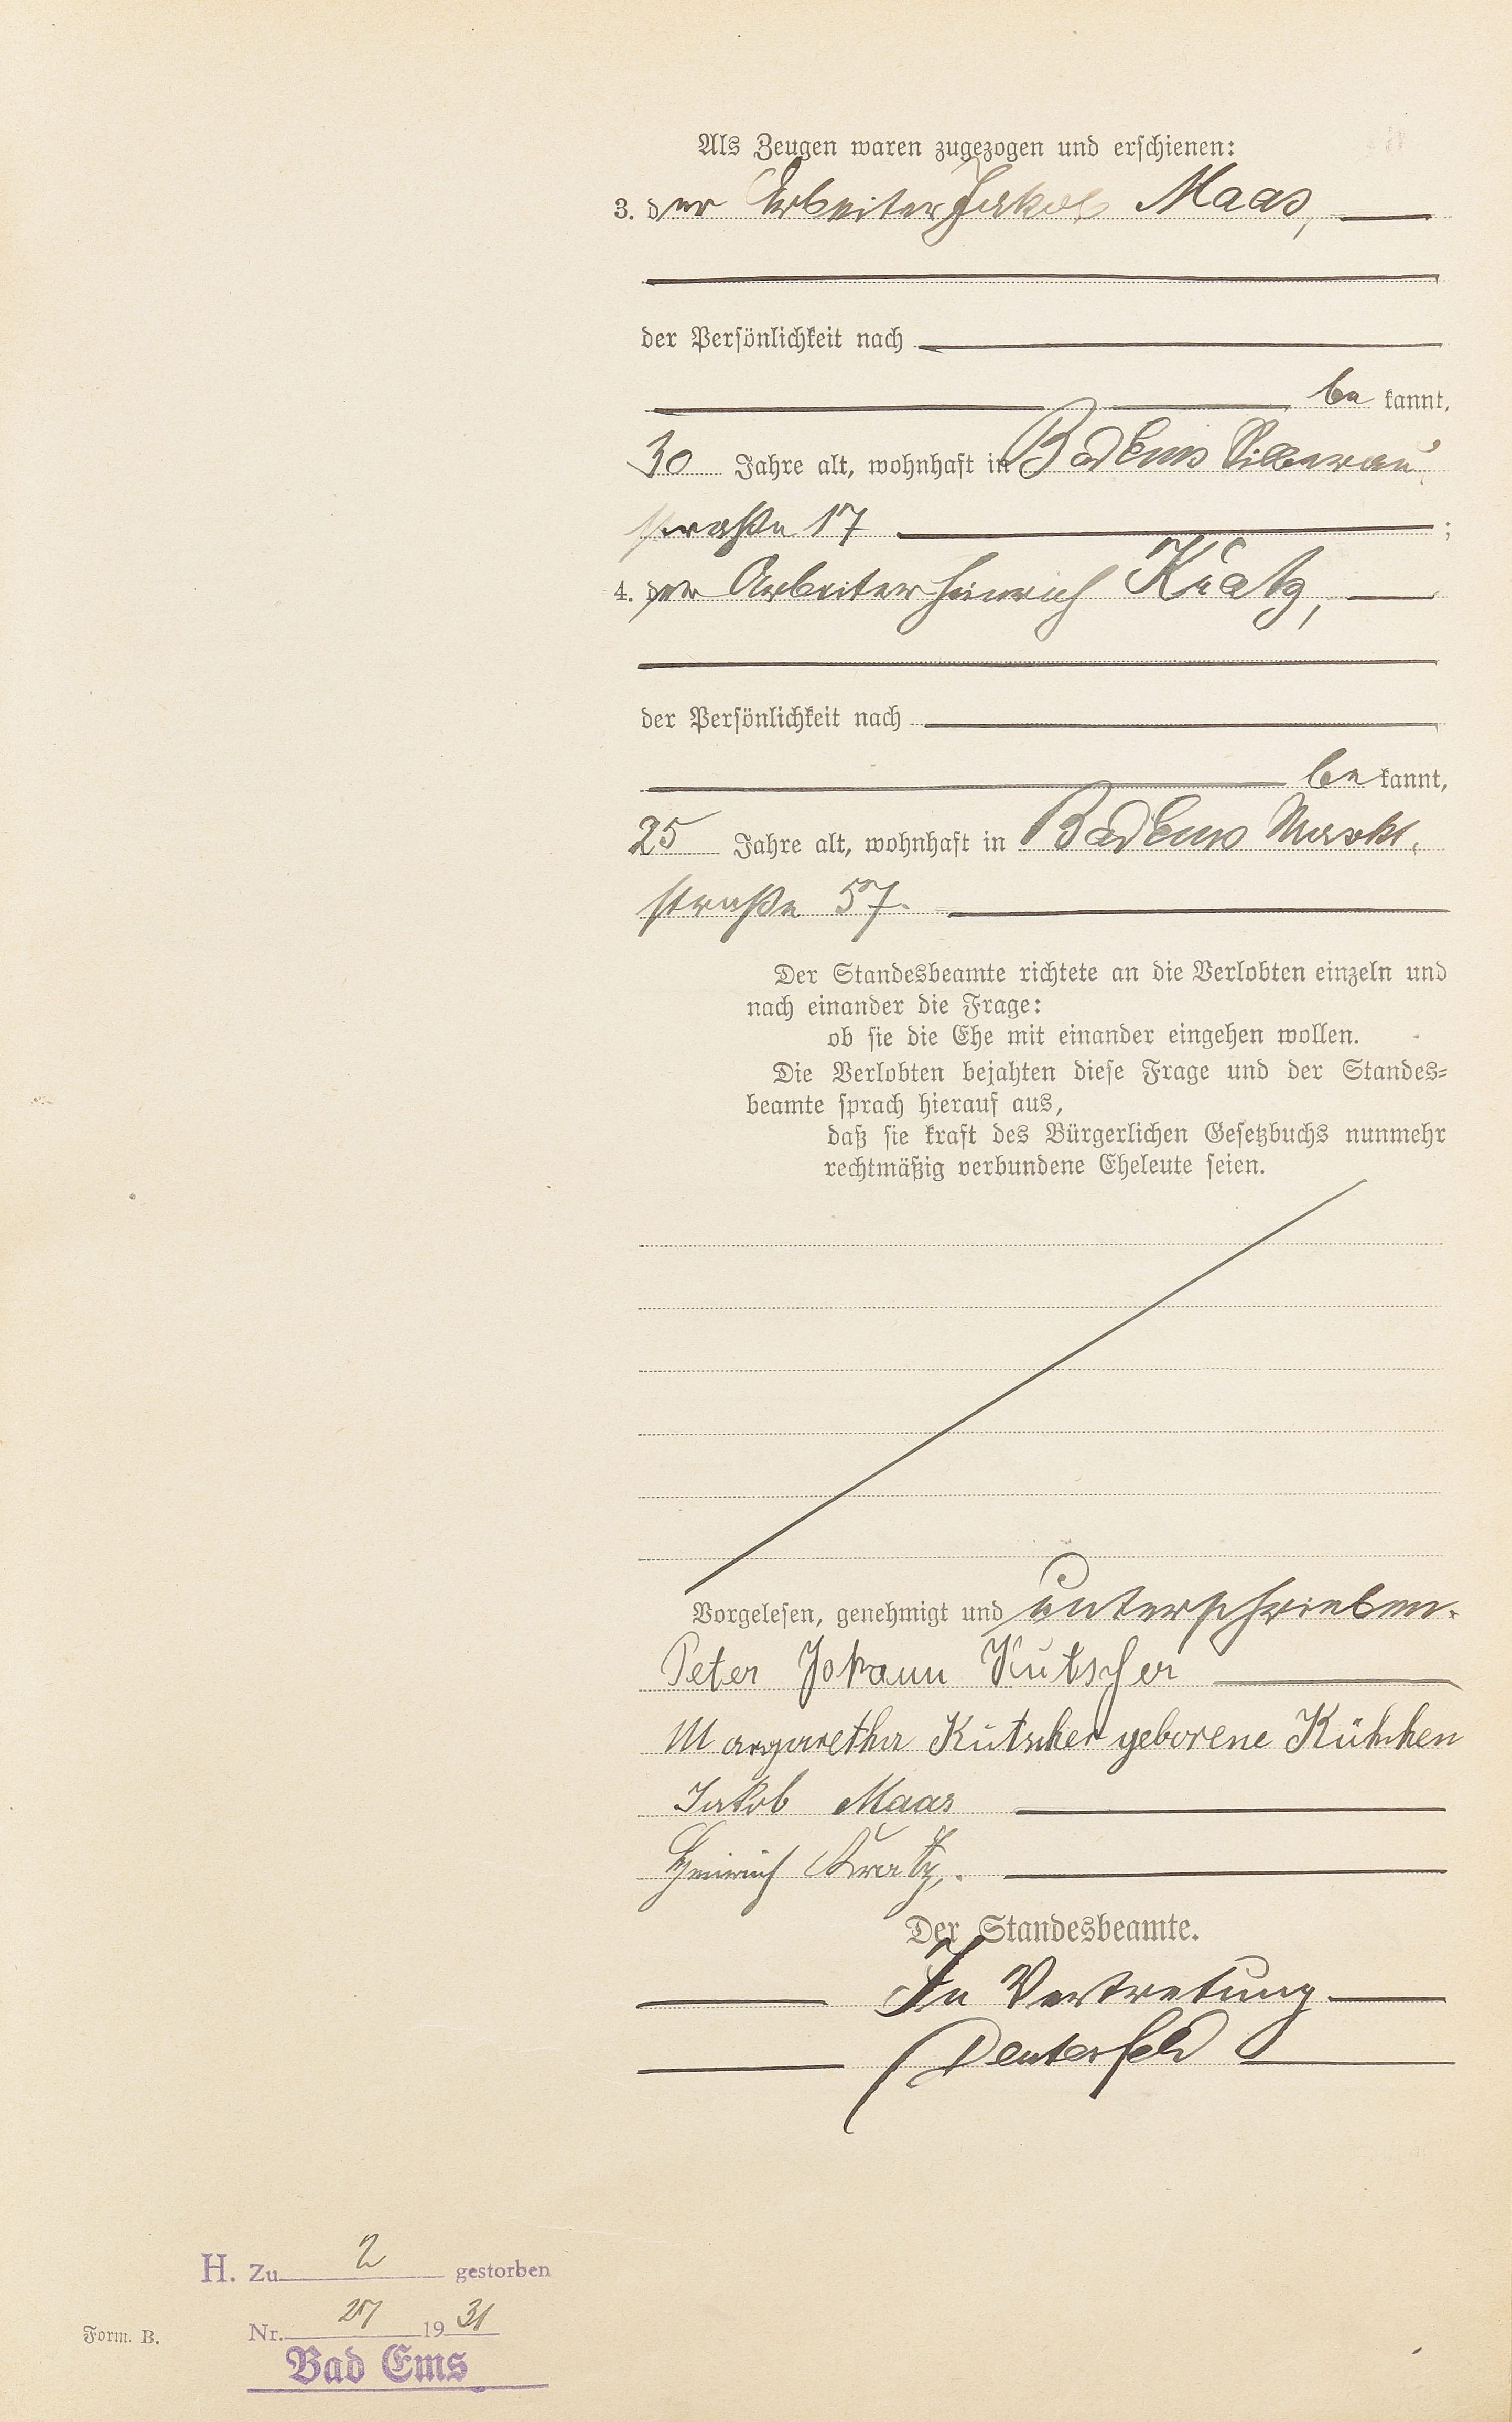 Als Zeugen waren zugezogen und erschienen:
3. der Arbeiter Jakob Maas,
der Persönlichkeit nach
be kannt,
30 Jahre alt, wohnhaft in Bad Ems Silberau
straße 17 ;
4. der Arbeiter Heinrich Kratz,
der Persönlichkeit nach
be kannt,
25 Jahre alt, wohnhaft in Bad Ems Markt,
straße 57.
Der Standesbeamte richtete an die Verlobten einzeln und
nach einander die Frage:
ob sie die Ehe mit einander eingehen wollen.
Die Verlobten bejahten diese Frage und der Standes-
beamte sprach hierauf aus,
daß sie kraft des Bürgerlichen Gesetzbuchs nunmehr
rechtmäßig verbundene Eheleute seien.
Vorgelesen, genehmigt und unterschrieben.
Peter Johann Kutscher
Margaretha Kutscher geborene
Jakob Maas
Heinrich Kratz.
Der Standesbeamte.
In Vertretung
H. Zu 2 gestorben
Nr. 27 19 31
Form. B.
Bad Ems